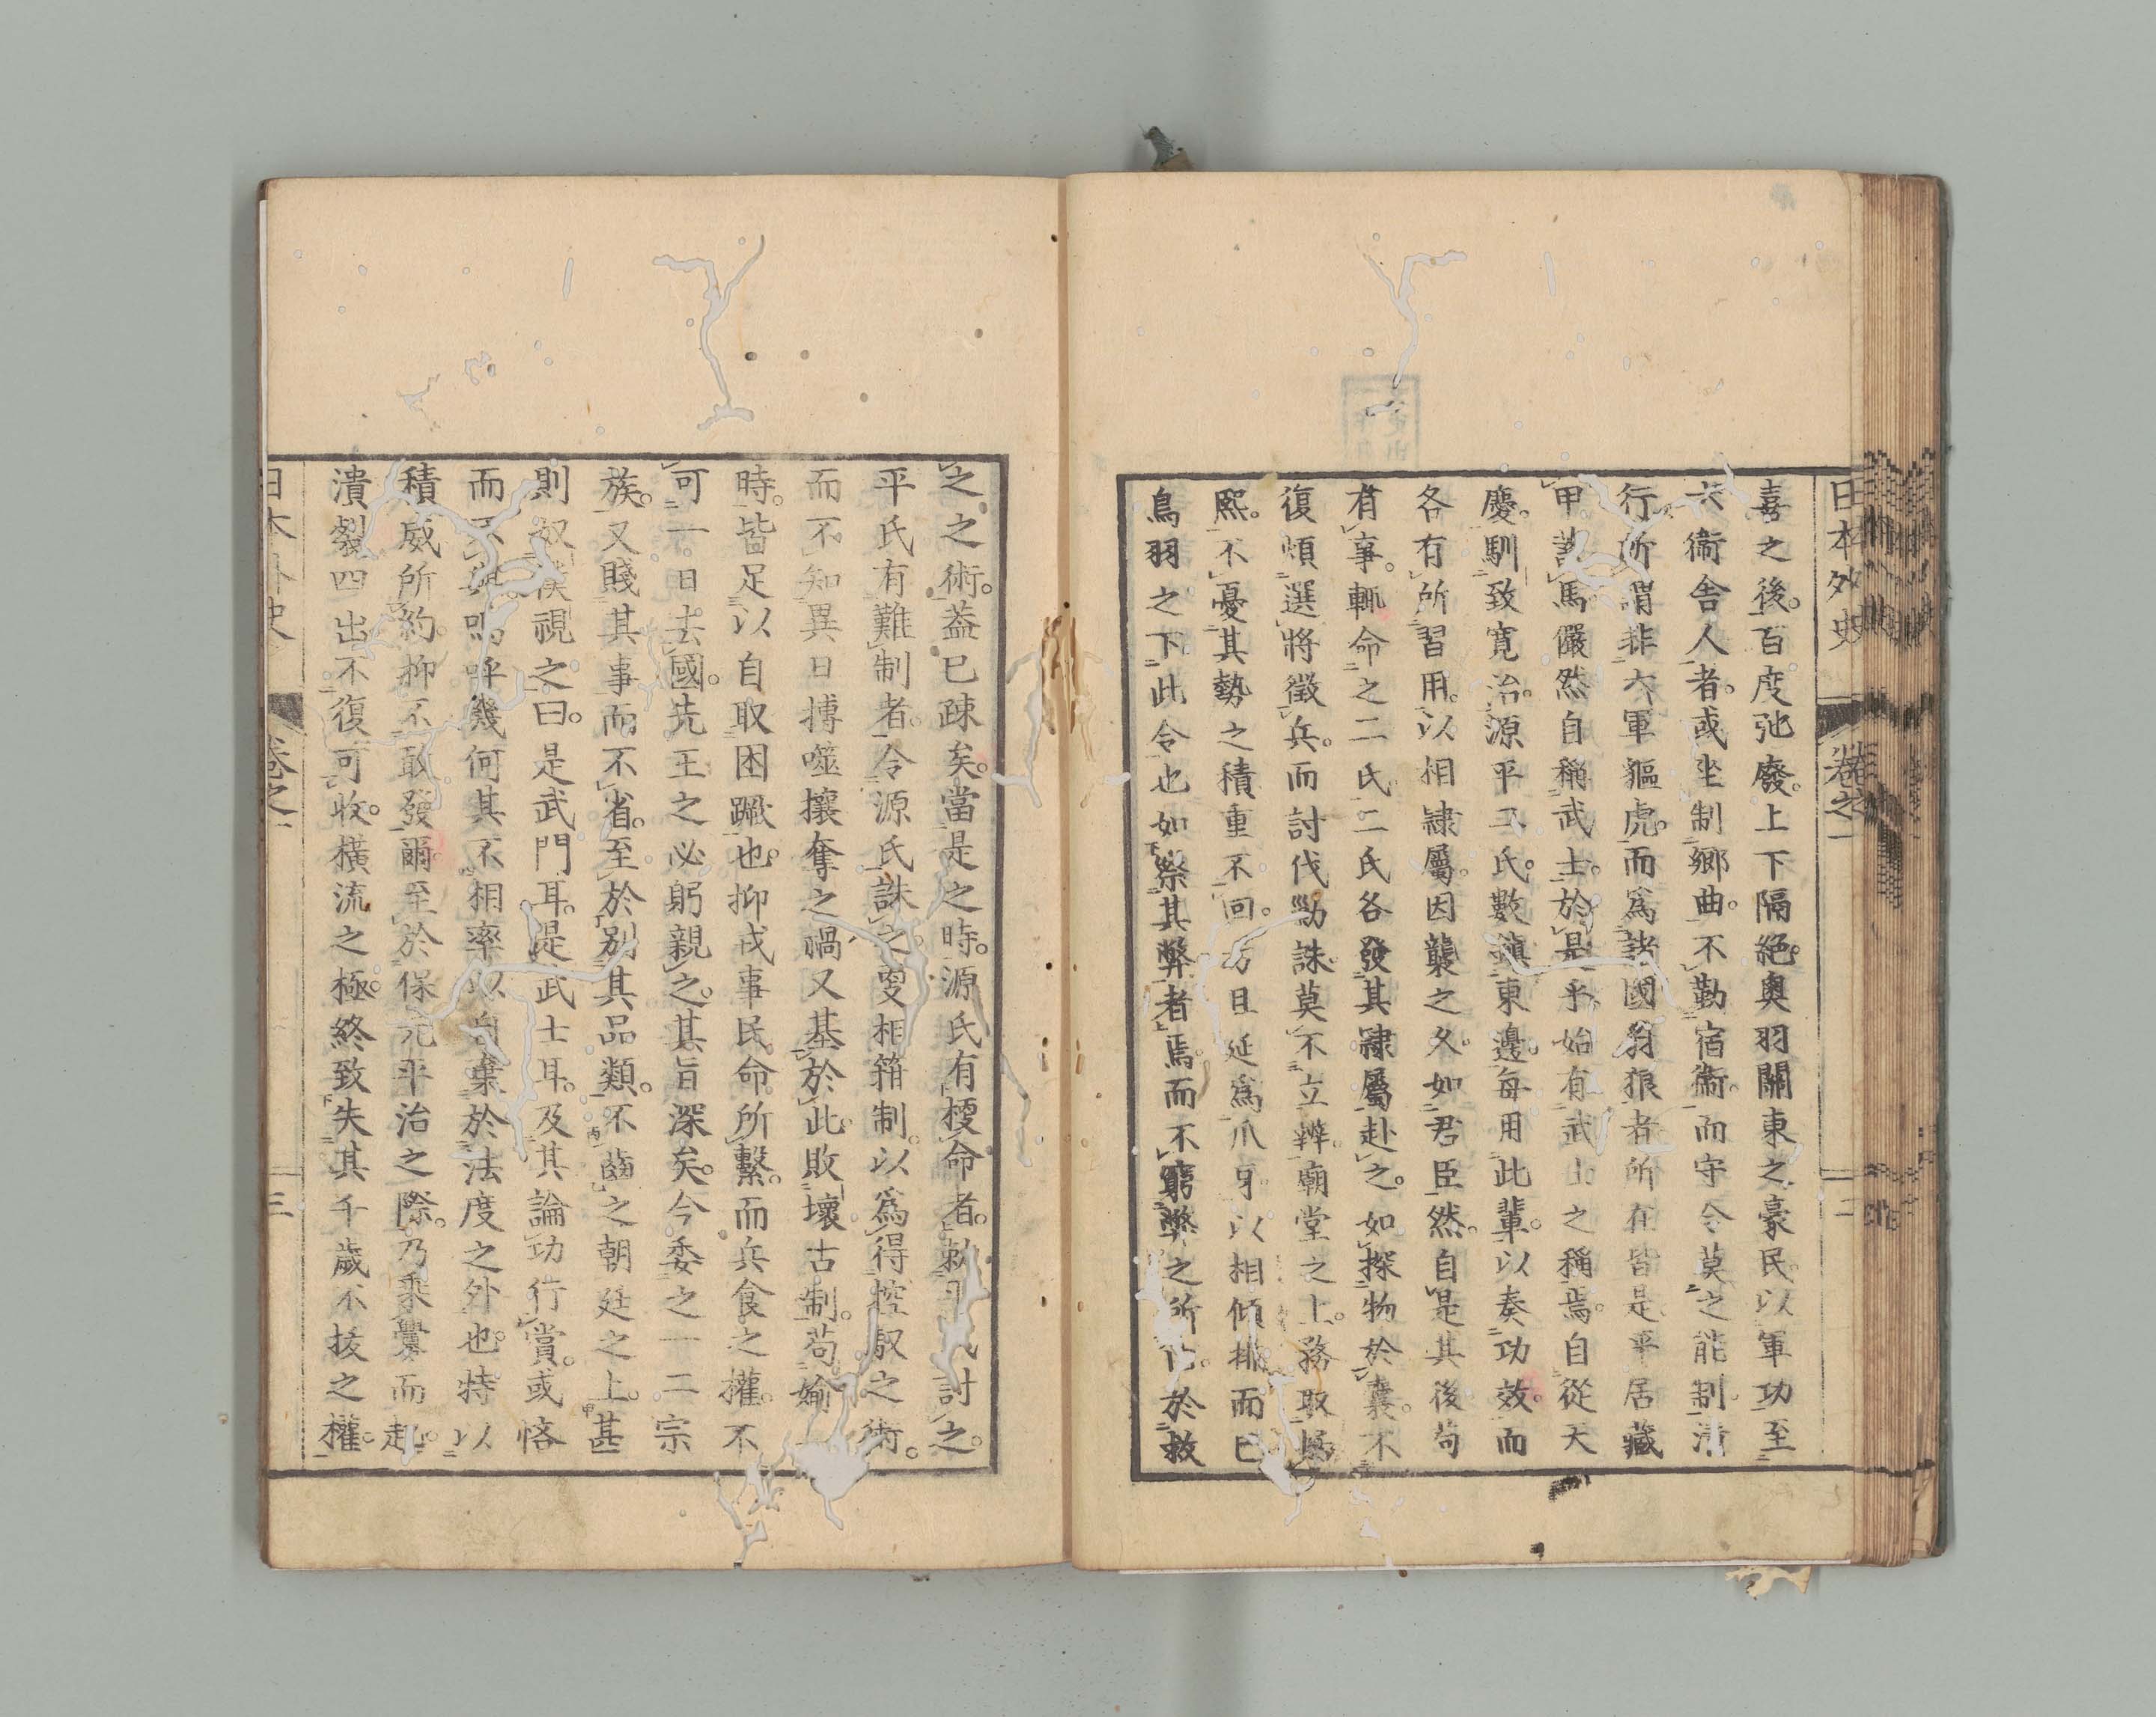 日本外史 卷之一 二
喜之後。百度弛廢。上下隔絕。奧羽關東之豪民。以軍功至
六衞舍人者。或坐制鄉曲。不勤宿衞。而守令莫之能制。清
行所謂非六軍貙虎。而爲諸國豺狼者。所在皆是。平居藏
甲蓄馬。儼然自稱武士。於是乎。始有武士之稱焉。自從天
慶。馴致寬治。源平二氏。數鎮東邊。每用此輩。以奏功效。而
各有所習用。以相隷屬。因襲之久。如君臣然。自是其後。苟
有事。輒命之二氏。二氏各發其隷屬赴之。如探物於囊。不
復煩選將徵兵。而討伐勦誅。莫不立辨。廟堂之上。務取爲
熙。不憂其勢之積重不回。方且延爲爪牙。以相傾排而已
鳥羽之下此令也。如察其弊者焉。而不窮弊之所由。於救
之之術。蓋已疎矣。當是之時。源氏有梗命者。敕平氏討之。
平氏有難制者。令源氏誅之。更相箝制。以爲得控馭之術。
而不知異日搏噬攘奪之禍。又基於此。敗壞古制。苟婾
時。皆足以自取困蹶也。抑戎事民命所繫。而兵食之權。不
可一日去國。先王之必躬親之。其旨深矣。今委之一二宗
族。又賤其事而不省。至於別其品類。不齒之朝廷之上。甚
則奴僕視之曰。是武門耳。是武士耳。及其論功行賞。或悋
而不與。嗚呼幾何其不相率以自棄於法度之外也。特以
積威所約。抑不敢發爾。至於保元平治之際。乃乘釁而起。
潰裂四出。不復可收。橫流之極。終致失其千歲不拔之權。
日本外史 卷之一 三